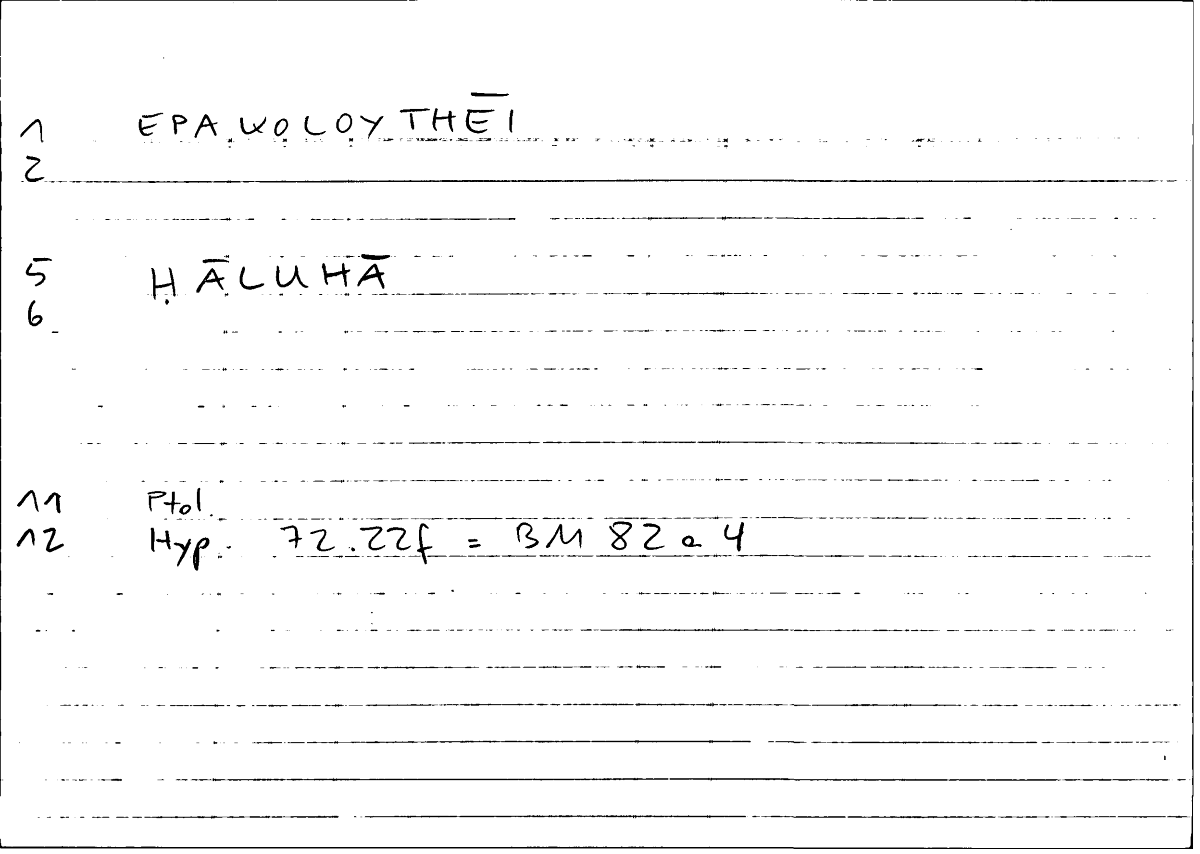 1 EPAKOLOYTHĒI
2
5 ḤĀLUHĀ
6
11 Ptol.
12 Hyp. 72.22f = BM 82 a 4